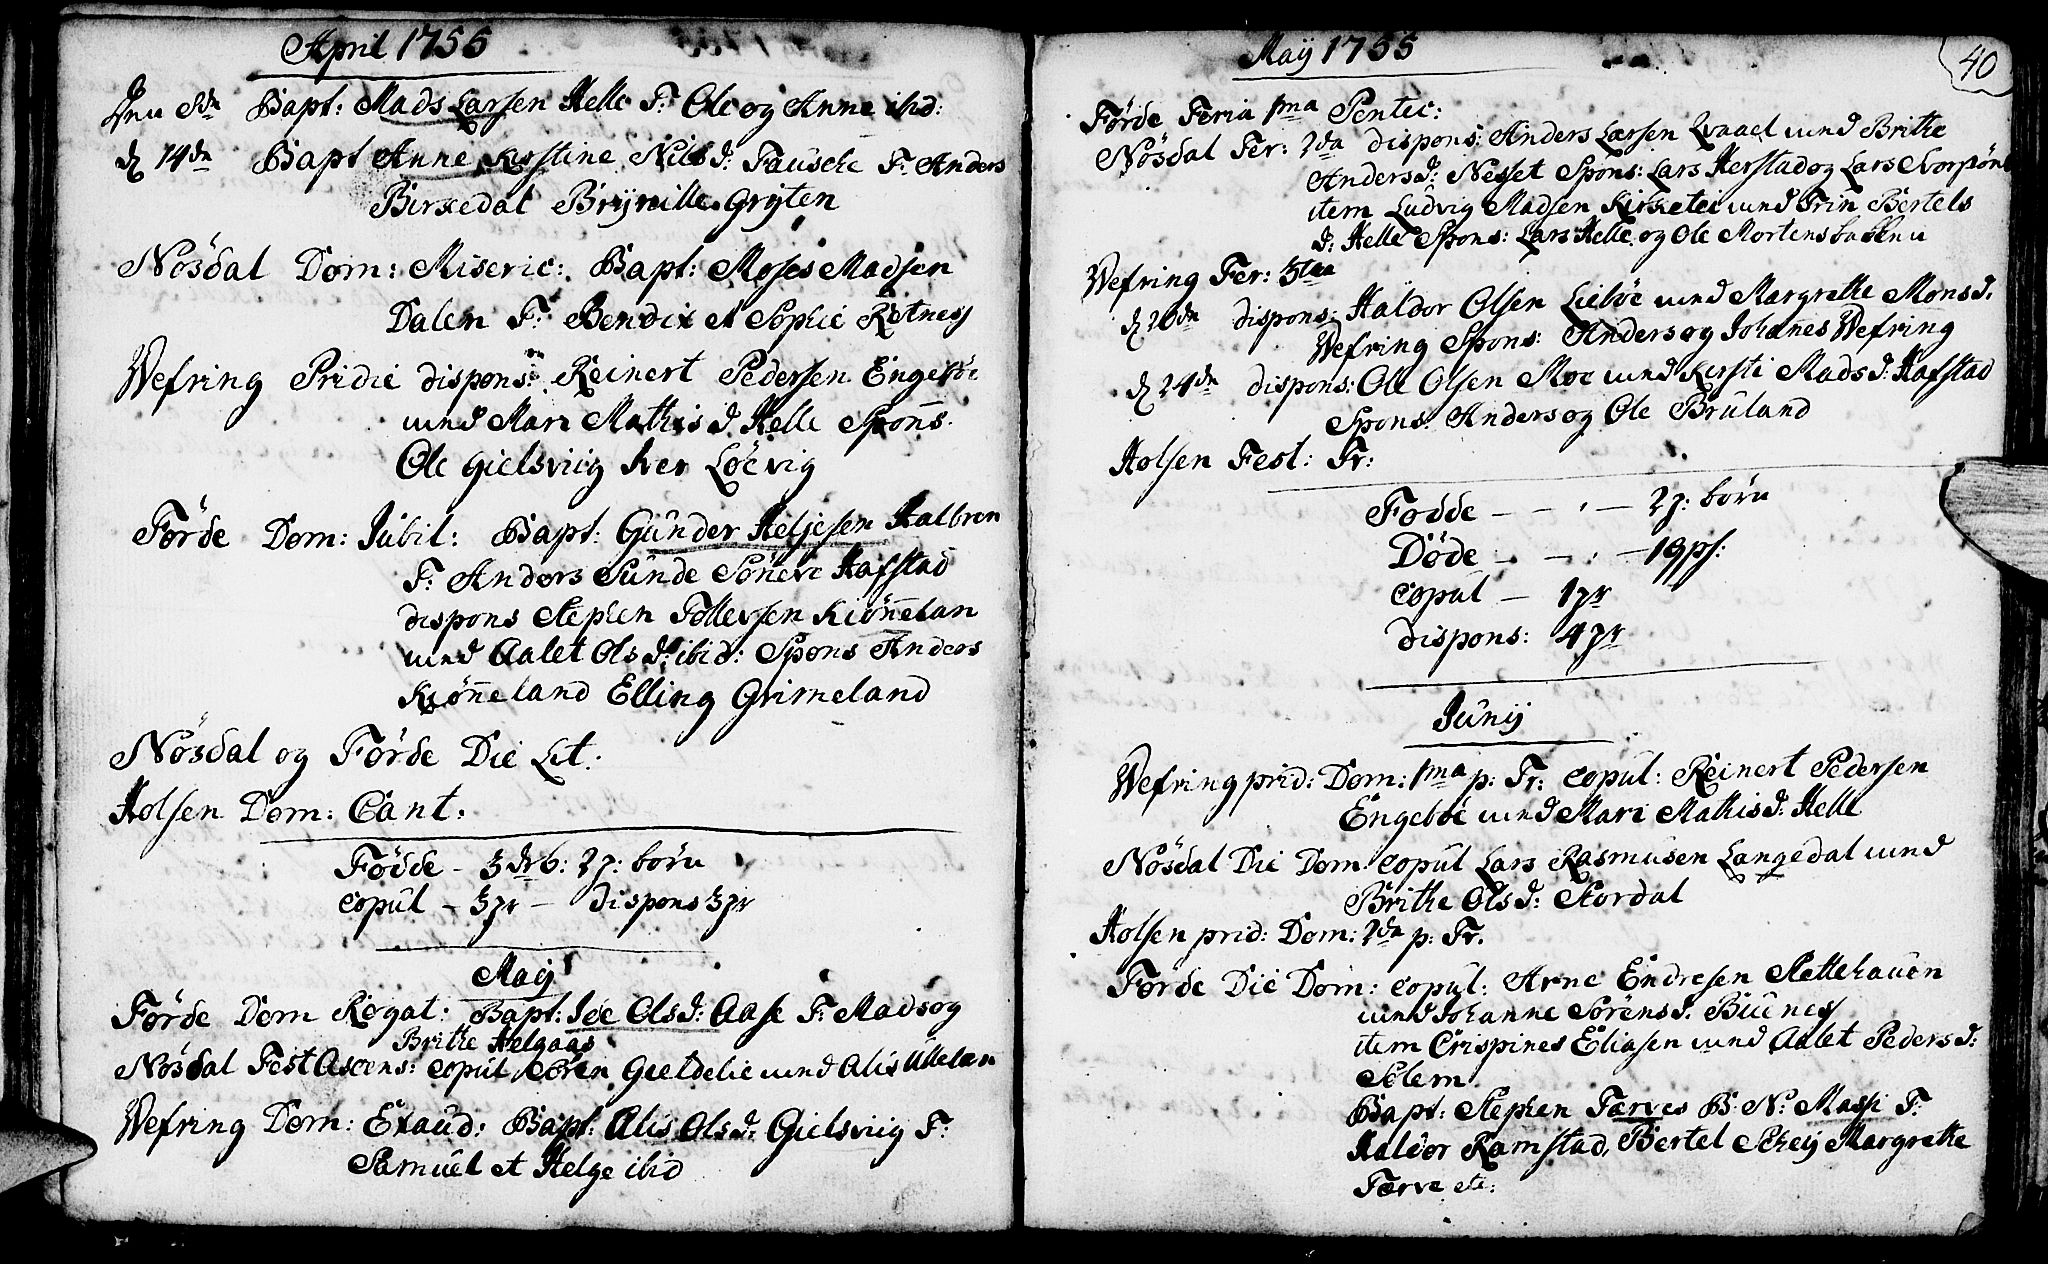 April 1755
Den 8de Bapt: Mads Larsen Helle F. Ole og Anne ibid:
d 14de Bapt Anne Kirstine Nilsd: Fausche F. Anders
Birkedal Brynille Gryten
Nösdal Dom: Miseric: Bapt: Moses Madsen
Dalen F. Bendix et Sophie Rötnes
Wefring Pridie dispons: Reinert Pedersen Engeböe
med Mari Mathis d Helle Spons.
Ole Gielsviig Iver Löevig
Förde Dom: Jubil: Bapt: Gunder Heljesen Halbren
F. Anders Sunde Söneve Hafstad
dispons Stephen Tollevsen Kiönneland
med Aalet Ols d: ibid: Spons Anders
Kiönneland Elling Grimeland
Nösdal og Förde Die Lit:
Holsen Dom: Cant.
Födde - 3 dr 6: 2 p: börn
copul - 3 pr - dispons 3 pr
Maij
Förde Dom Rogat: Bapt: Ide Olsd: Aase F. Mads og
Brithe Helgaas
Nösdal Fest Ascens: copul Sören Gieldelie med Alis Ulleland
Wefring Dom: Exaud: Bapt: Alis Olsd: Gielsviig F:
Samuel et Helge ibid
Maij 1755
40
Förde Feria 1ma Pentec:
Nösdal Fer: 2da dispons: Anders Larsen Qvaal med Brithe
Andersd: Nesset Spons: Lars Herstad og Lars
item Ludvig Madsen Kirketei med Trin Bertels
d: Helle Spons: Lars Helle og Ole Mortensbakken
Wefring Fer: 3tia
d 20de dispons: Haldor Olsen Lieböe med Margrethe Monsd.
Wefring Spons: Anders og Johannes Wefring
d 24de dispons: Ole Olsen Moe med Kirsti Madsd: Hafstad
Spons. Anders og Ole Bruland
Holsen Fest: Tr:
Födde - - - 2 p: börn
Döde - - - 19 ps:
copul - 1 pr
dispons: 4 pr
Junij
Wefring prid: Dom: 1ma p: Tr: copul: Reinert Pedersen
Engeböe med Mari Mathisd: Helle
Nösdal Die Dom copul Lars Rasmusen Langedal med
Brithe Olsd: Stordal
Holsen prid: Dom: 2da p: Tr.
Förde Die Dom: copul: Arne Endresen Slettehauen
med Johanne Sörensd. Biiunes
item Crispines Eliasen med Aalet Pedersd:
Solem
Bapt: Stephen Farves B. N: Massi F:
Haldor Ramstad, Bertel Schey Margrethe
Farve etc: